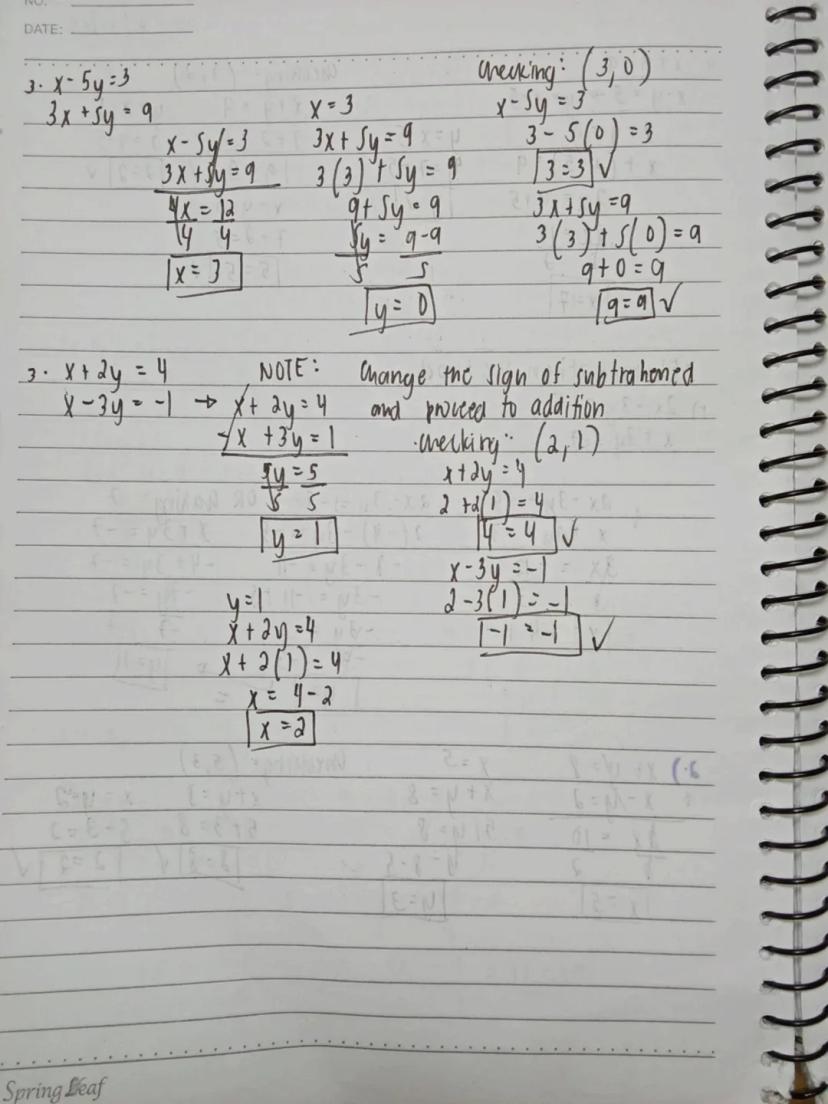 NO.:
DATE:
3. x - 5y = 3
3x + 5y = 9
x - 5y = 3
3x + 5y = 9
4x = 12
4 4
x = 3
x = 3
3x + 5y = 9
3(3) + 5y = 9
9 + 5y = 9
5y = 9 - 9
5 5
y = 0
Checking: (3, 0)
x - 5y = 3
3 - 5(0) = 3
3 = 3 ✓
3x + 5y = 9
3(3) + 5(0) = 9
9 + 0 = 9
9 = 9 ✓
3. x + 2y = 4
x - 3y = -1 →
x + 2y = 4
-x + 3y = 1
5y = 5
5 5
y = 1
y = 1
x + 2y = 4
x + 2(1) = 4
x = 4 - 2
x = 2
NOTE: Change the sign of subtrahened
and proceed to addition
Checking: (2, 1)
x + 2y = 4
2 + 2(1) = 4
4 = 4 ✓
x - 3y = -1
2 - 3(1) = -1
-1 = -1 ✓
Spring Leaf